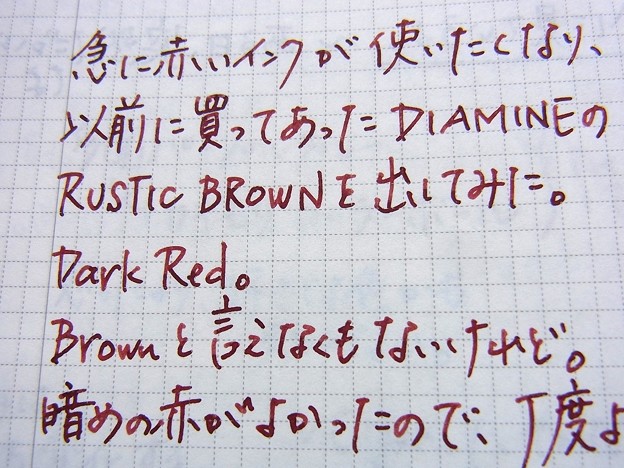 急に赤いインクが使いたくなり、
以前に買ってあったDIAMINEの
RUSTIC BROWNを出してみた。
Dark Red。
Brownと言えなくもないけれど。
暗めの赤がよかったので、丁度よ